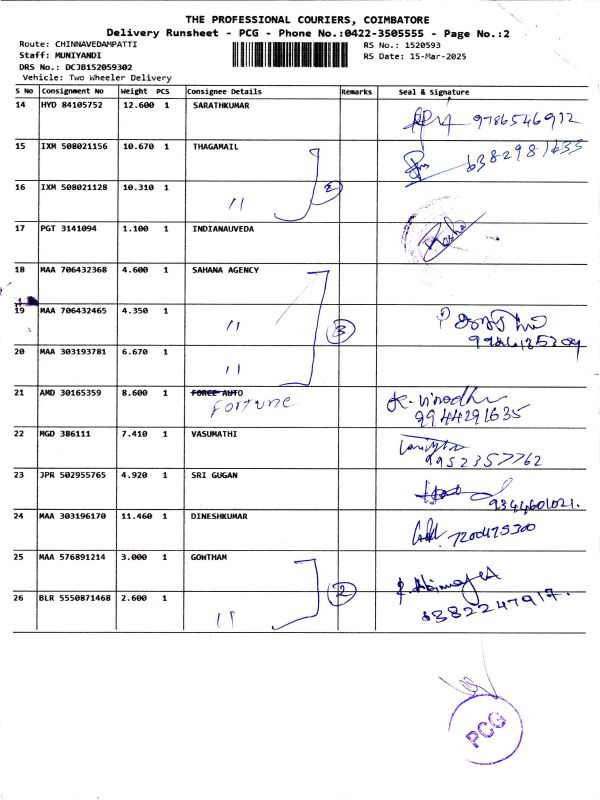 THE PROFESSIONAL COURIERS, COIMBATORE
Delivery Runsheet - PCG - Phone No.:0422-3505555 - Page No.:2
Route: CHINNAVEDAMPATTI
RS No.: 1520593
Staff: MUNIYANDI
RS Date: 15-Mar-2025
DRS No.: DCJB152059302
Vehicle: Two Wheeler Delivery
S No Consignment No Weight PCS Consignee Details Remarks Seal & Signature
14 HYD 84105752 12.600 1 SARATHKUMAR
9786546912
15 IXM 508021156 10.670 1 THAGAMAIL
6382981633
16 IXM 508021128 10.310 1 " 2
17 PGT 3141094 1.100 1 INDIANAUVEDA
18 MAA 706432368 4.600 1 SAHANA AGENCY
19 MAA 706432465 4.350 1 " 3
20 MAA 303193781 6.670 1 "
21 AMD 30165359 8.600 1 FORCE AUTO
Fortune
9944291635
22 MGD 386111 7.410 1 VASUMATHI
9952357762
23 JPR 502955765 4.920 1 SRI GUGAN
9344601021.
24 MAA 303196170 11.460 1 DINESHKUMAR
7200475300
25 MAA 576891214 3.000 1 GONTHAM
2
26 BLR 5550871468 2.600 1 "
6382247917.
PCG